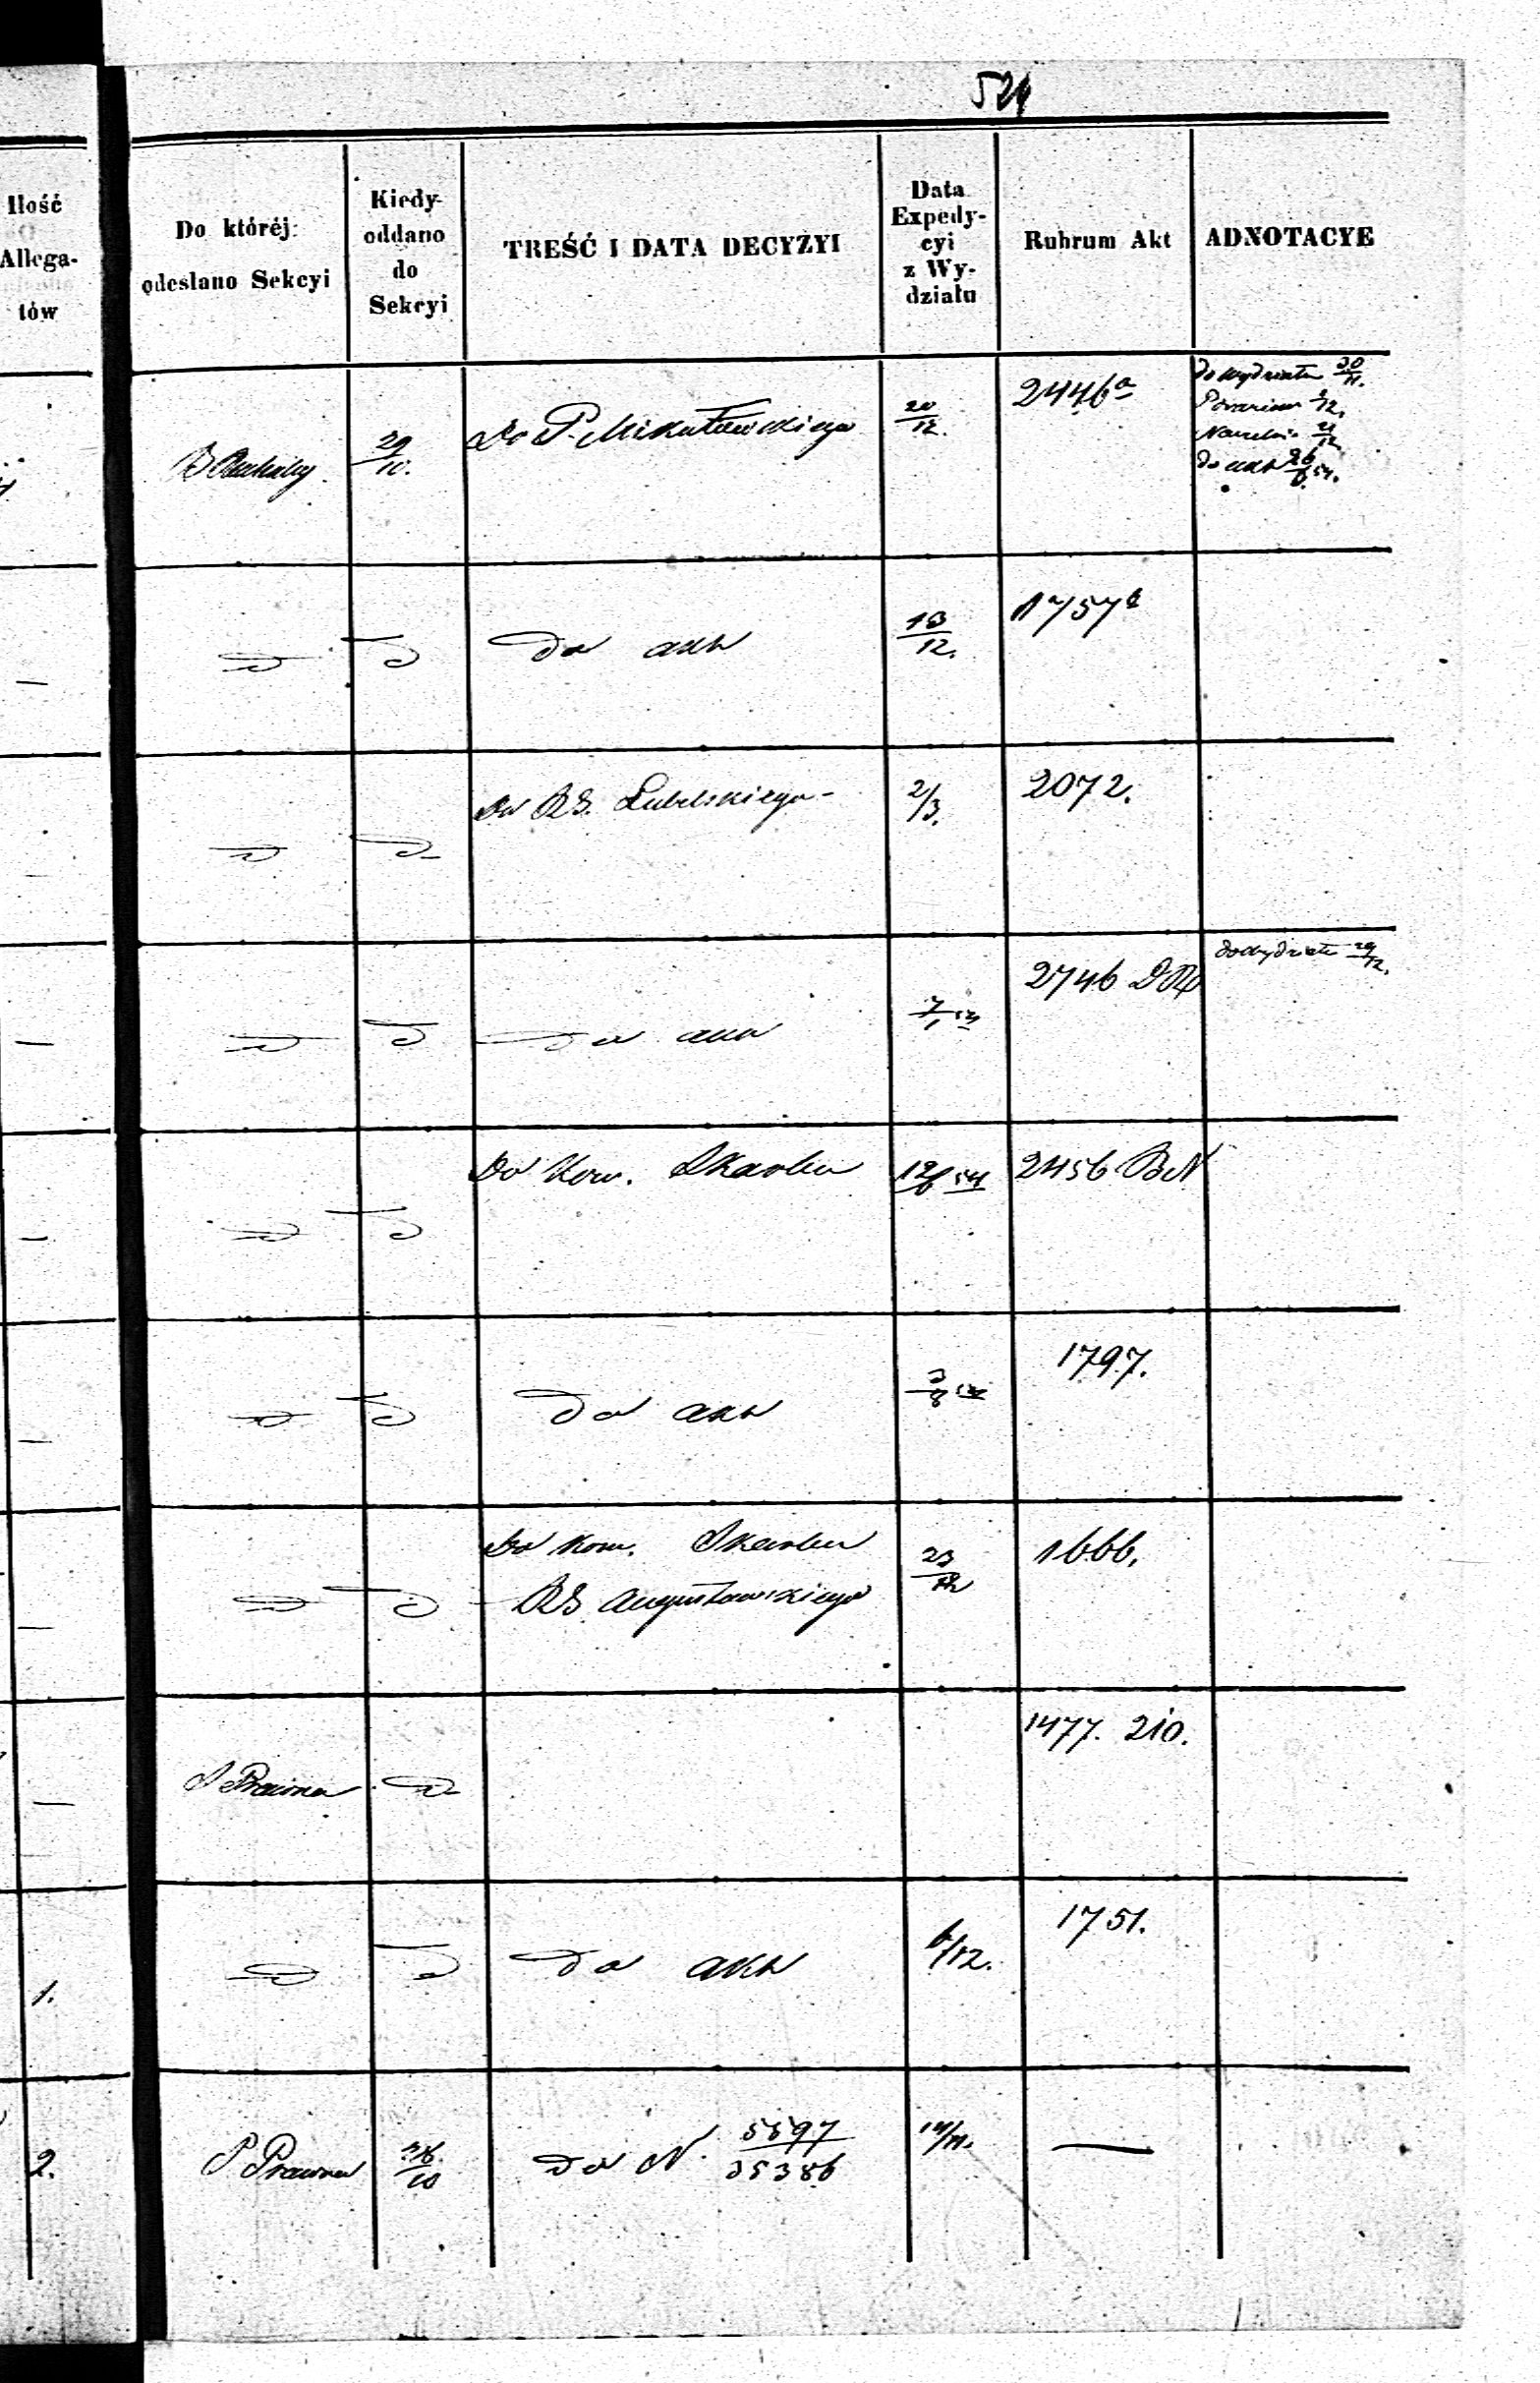 524
Ilość
Allega-
tów
Do któréj
odesłano Sekcyi
Kiedy
oddano
do
Sekcyi
TREŚĆ I DATA DECYZYI
Data
Expedy-
cyi
z Wy-
działu
Rubrum Akt
ADNOTACYE
29/10.
Do P. Mikułowskiego
20/12.
2446a
do Wydziału 30/11.
2/12.
21/12
do akt 26/6 54.
Do akt
13/12.
1757b
Do RG. Lubelskiego
2/3.
2072.
Do akt
7/1 54
2746
do Wydziału 29/12.
Do Kom. Skarbu
12/6 54
2456 BN
Do akt
3/8 54
1797.
Do Kom. Skarbu
RG Augustowskiego
23/12
1666.
S Prawna
1477. 210.
1.
Do akt
6/12.
1751.
2.
S. Prawna
/10
Do N. 5597/35386
14/11.
—